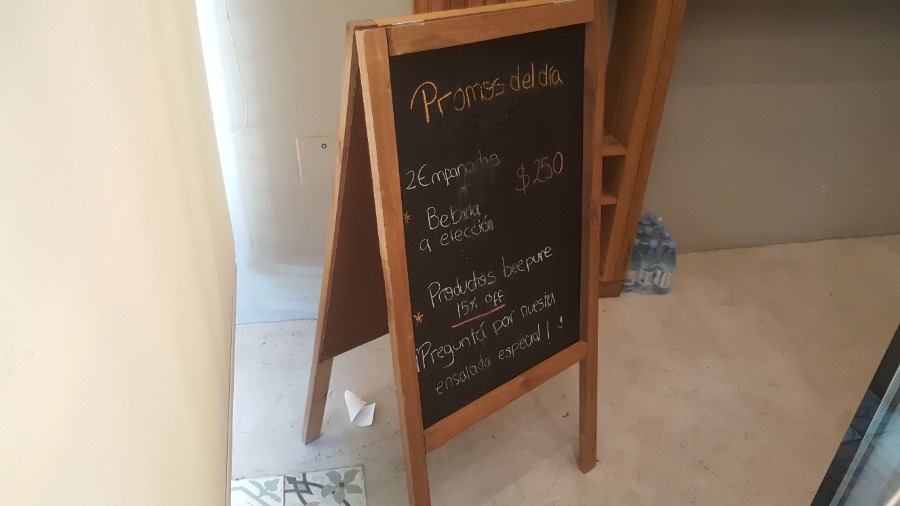 Promos del día
2 Empanadas
$250
* Bebida
a elección
Productos beepure
15% off
* ¡Preguntá por nuestra
ensalada especial! :)